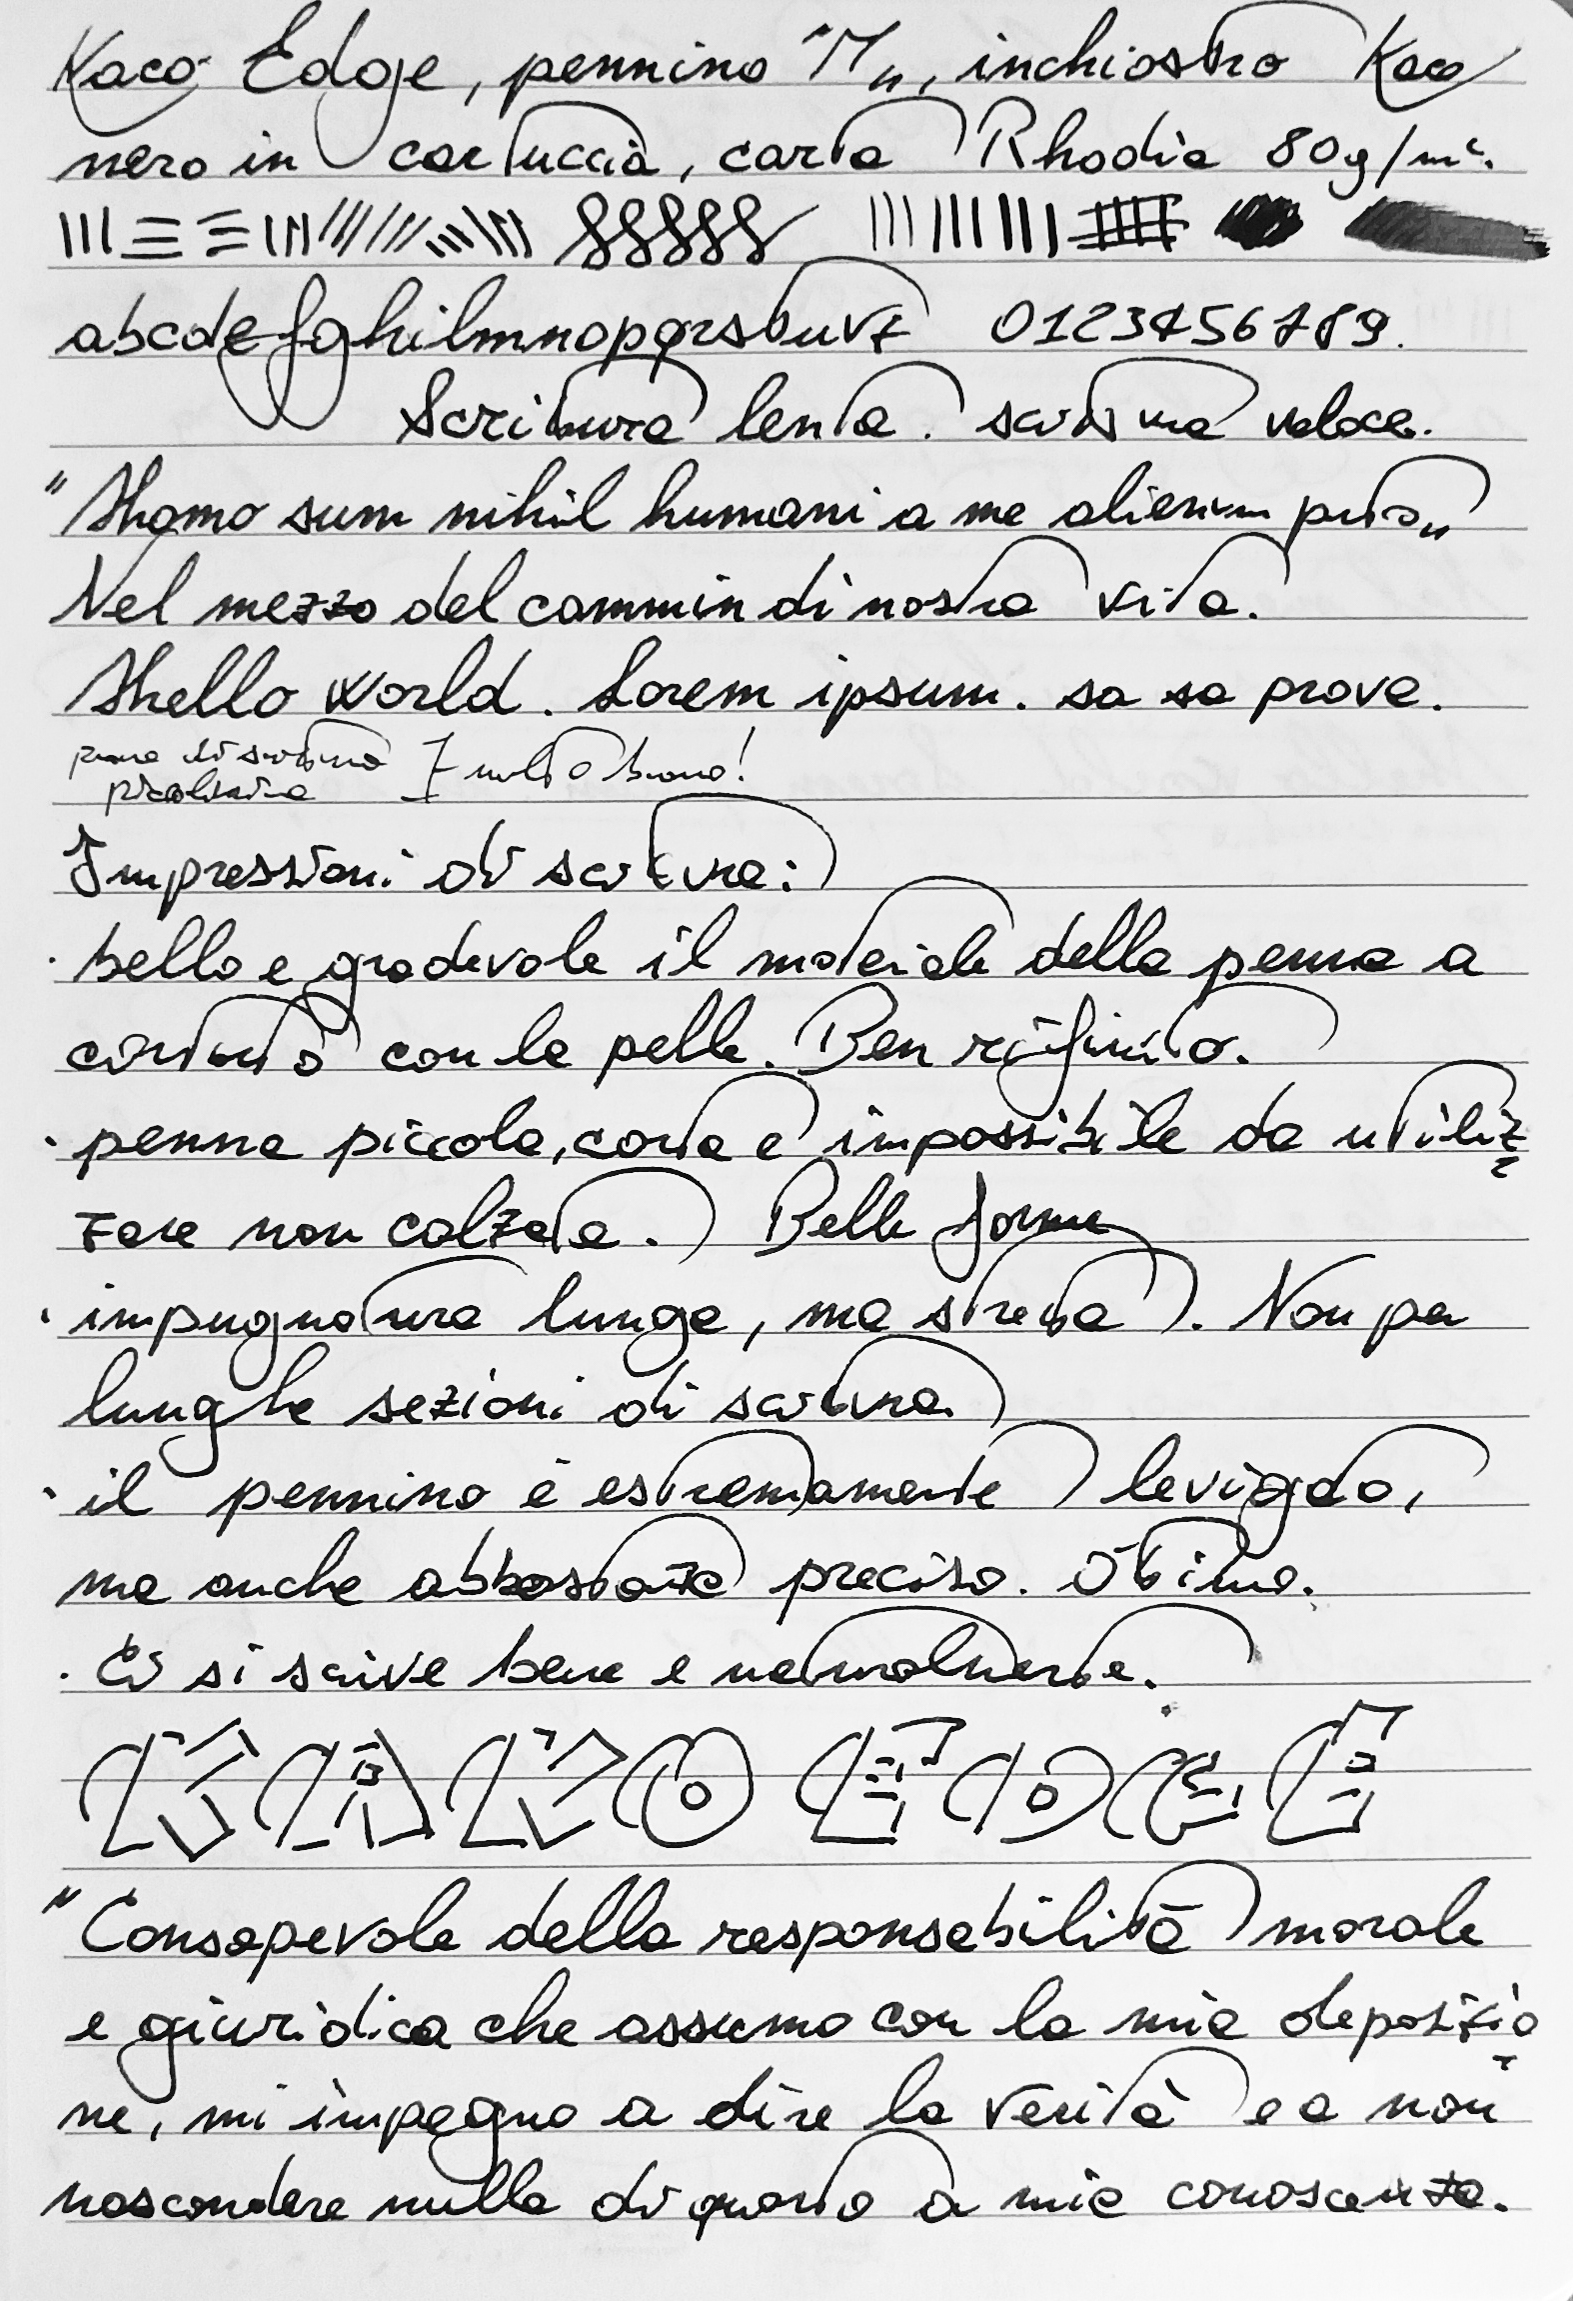 Kaco Edge, pennino "M", inchiostro Kaco
nero in cartuccia, carta Rhodia 80g/m².
abcdefghilmnopqrstuvz 0123456789.
Scrittura lenta. scrittura veloce.
"Homo sum nihil humani a me alienum puto"
Nel mezzo del cammin di nostra vita.
Hello World. Lorem ipsum. sa sa prova.
prova di scrittura molto buona!
piccolissima
Impressioni di scrittura:
· bello e gradevole il materiale della penna a
contatto con la pelle. Ben rifinito.
· penna piccola, corta e impossibile da utiliz=
zare non calzata. Bella forma
· impugnatura lunga, ma stretta. Non per
lunghe sezioni di scrittura.
· il pennino è estremamente levigato,
ma anche abbastanza preciso. Ottimo.
· Ci si scrive bene e naturalmente.
KACO EDGE
"Consapevole della responsabilità morale
e giuridica che assumo con la mia deposizio=
ne, mi impegno a dire la verità e a non
nascondere nulla di quanto a mia conoscenza.